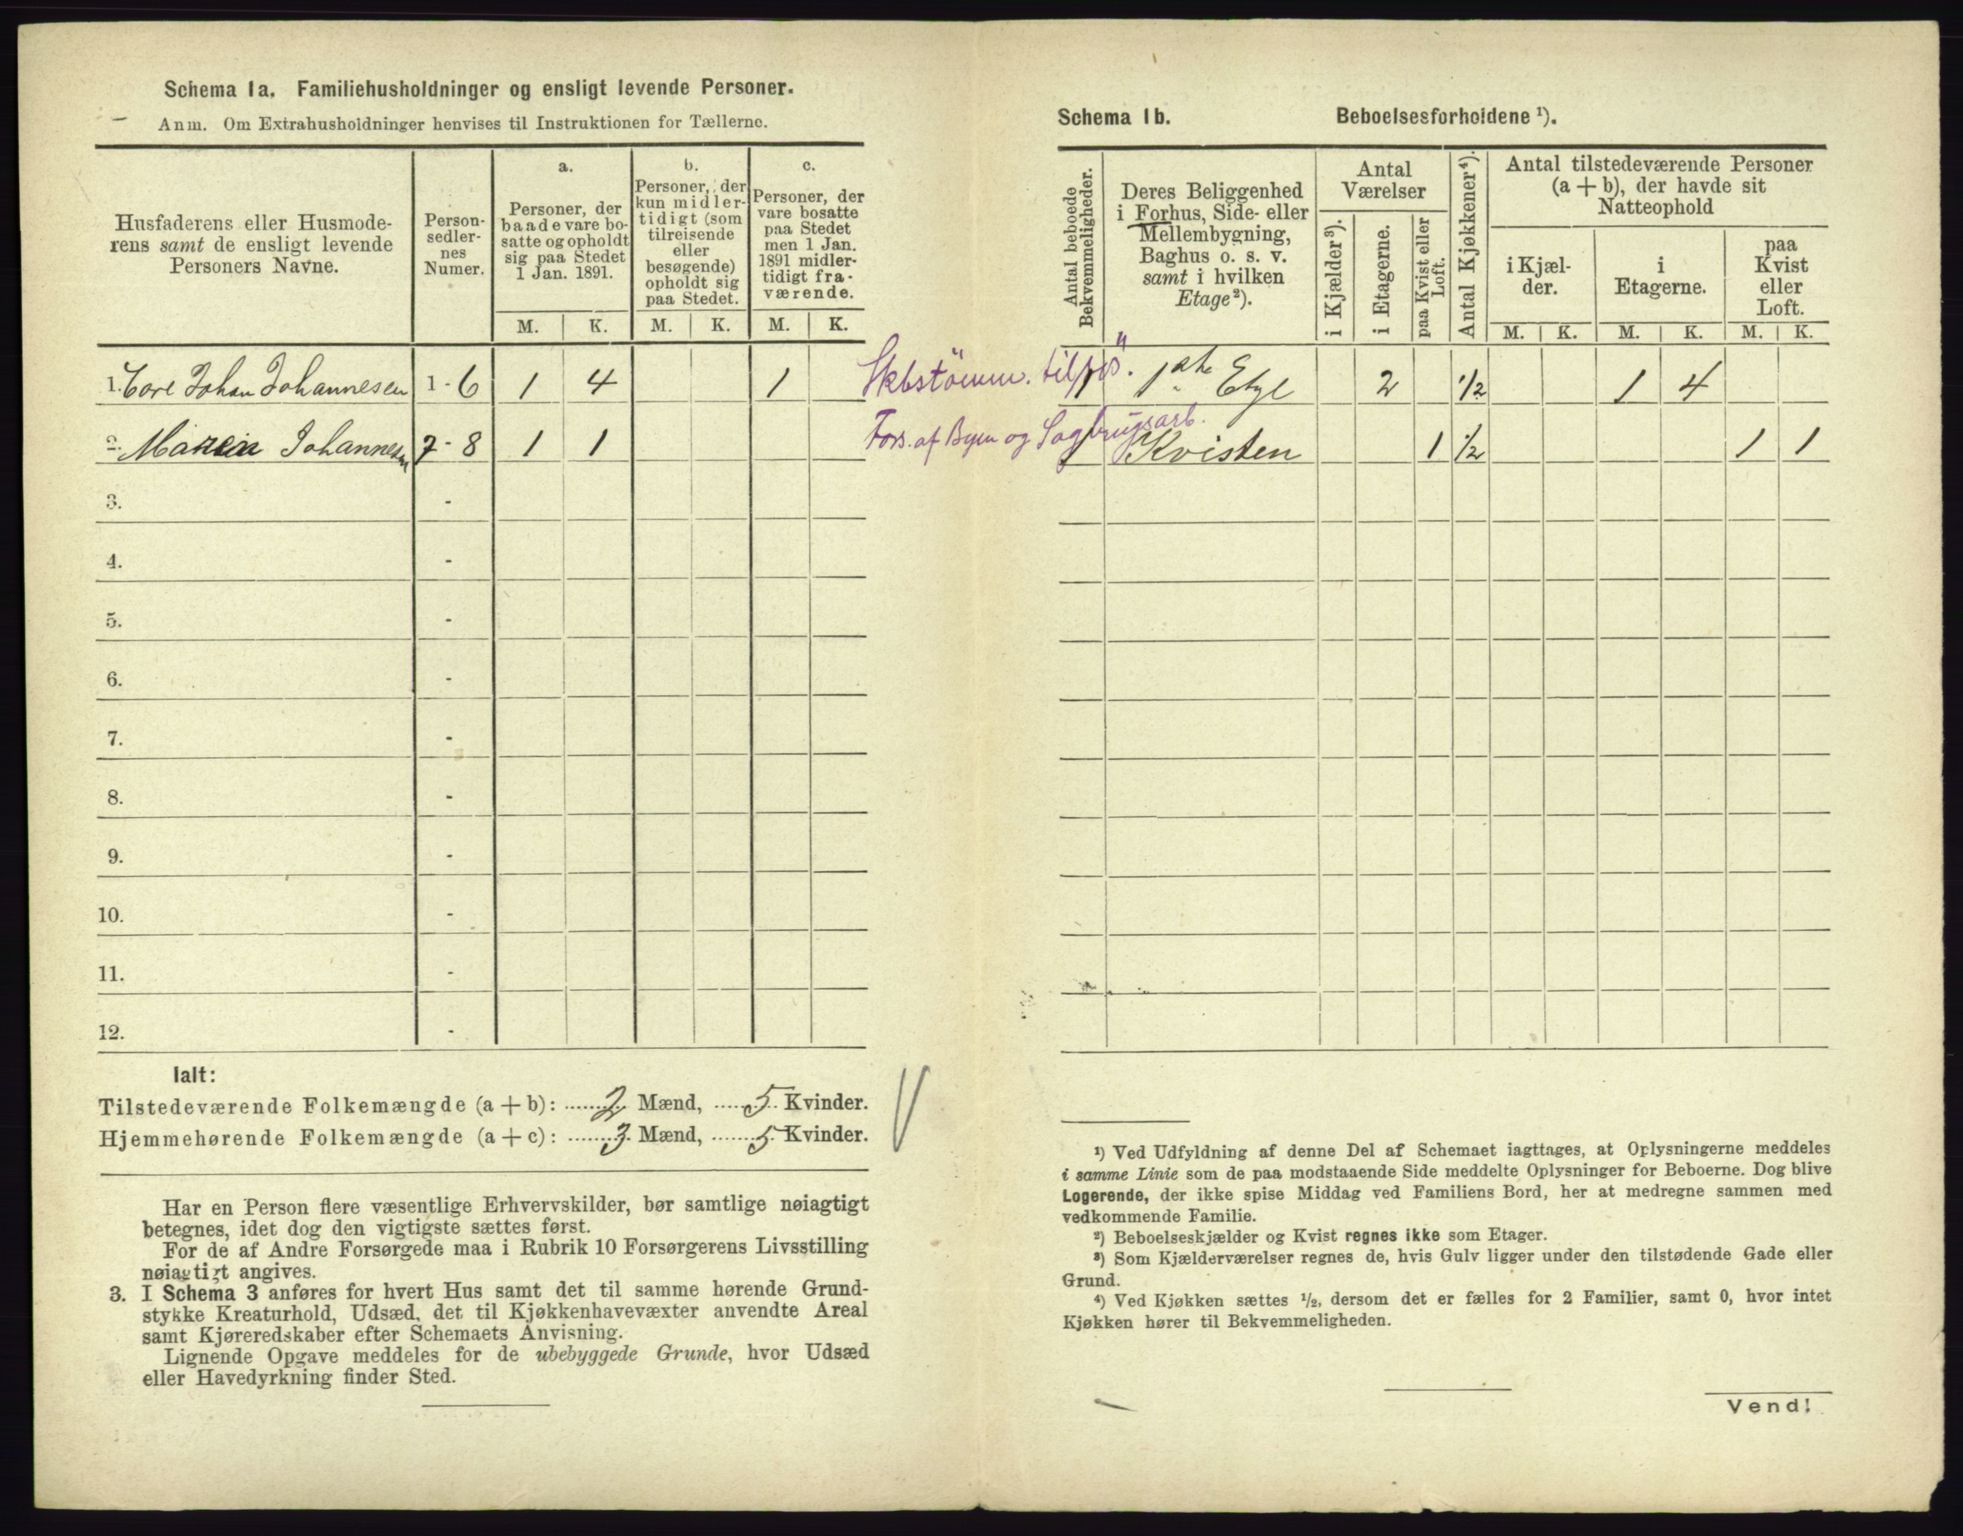 Schema 1a. Familiehusholdninger og ensligt levende Personer.
Anm. Om Extrahusholdninger henvises til Instruktionen for Tællerne.
Husfaderens eller Husmode-
rens samt de ensligt levende
Personers Navne.
Person-
sedler-
nes
Numer.
a.
Personer, der
baade vare bo-
satte og opholdt
sig paa Stedet
1 Jan. 1891.
b.
Personer, der
kun midler-
tidigt (som
tilreisende
eller
besøgende)
opholdt sig
paa Stedet.
c.
Personer, der
vare bosatte
paa Stedet
men 1 Jan.
1891 midler-
tidigt fra-
værende.
M. K. M. K. M. K.
1. Johan Johannesen 1 - 6 1 4 1
2. Johannesen 7 - 8 1 1
3. -
4. -
5. -
6. -
7. -
8. -
9. -
10. -
11. -
12. -
Ialt:
Tilstedeværende Folkemængde (a + b): 2 Mænd, 5 Kvinder.
Hjemmehørende Folkemængde (a + c): 3 Mænd, 5 Kvinder.
Har en Person flere væsentlige Erhvervskilder, bør samtlige nøiagtigt
betegnes, idet dog den vigtigste sættes først.
For de af Andre Forsørgede maa i Rubrik 10 Forsørgerens Livsstilling
nøiagtigt angives.
3. I Schema 3 anføres for hvert Hus samt det til samme hørende Grund-
stykke Kreaturhold, Udsæd, det til Kjøkkenhavevæxter anvendte Areal
samt Kjøreredskaber efter Schemaets Anvisning.
Lignende Opgave meddeles for de ubebyggede Grunde, hvor Udsæd
eller Havedyrkning finder Sted.
Schema 1b. Beboelsesforholdene ¹).
Antal beboede
Bekvemmeligheder.
Deres Beliggenhed
i Forhus, Side- eller
Mellembygning,
Baghus o. s. v.
samt i hvilken
Etage²).
Antal
Værelser
i Kjælder³).
i Etagerne.
paa Kvist eller
Loft.
Antal Kjøkkener⁴).
Antal tilstedeværende Personer
(a + b), der havde sit
Natteophold
i Kjæl-
der.
i
Etagerne.
paa
Kvist
eller
Loft.
M. K. M. K. M. K.
1 2 1/2 1 4
Fors. af Byen og Sagbrugsarb.
1 Kvisten 1 1/2 1 1
¹) Ved Udfyldning af denne Del af Schemaet iagttages, at Oplysningerne meddeles
i samme Linie som de paa modstaaende Side meddelte Oplysninger for Beboerne. Dog blive
Logerende, der ikke spise Middag ved Familiens Bord, her at medregne sammen med
vedkommende Familie.
²) Beboelseskjælder og Kvist regnes ikke som Etager.
³) Som Kjælderværelser regnes de, hvis Gulv ligger under den tilstødende Gade eller
Grund.
⁴) Ved Kjøkken sættes ½, dersom det er fælles for 2 Familier, samt 0, hvor intet
Kjøkken hører til Bekvemmeligheden.
Vend!